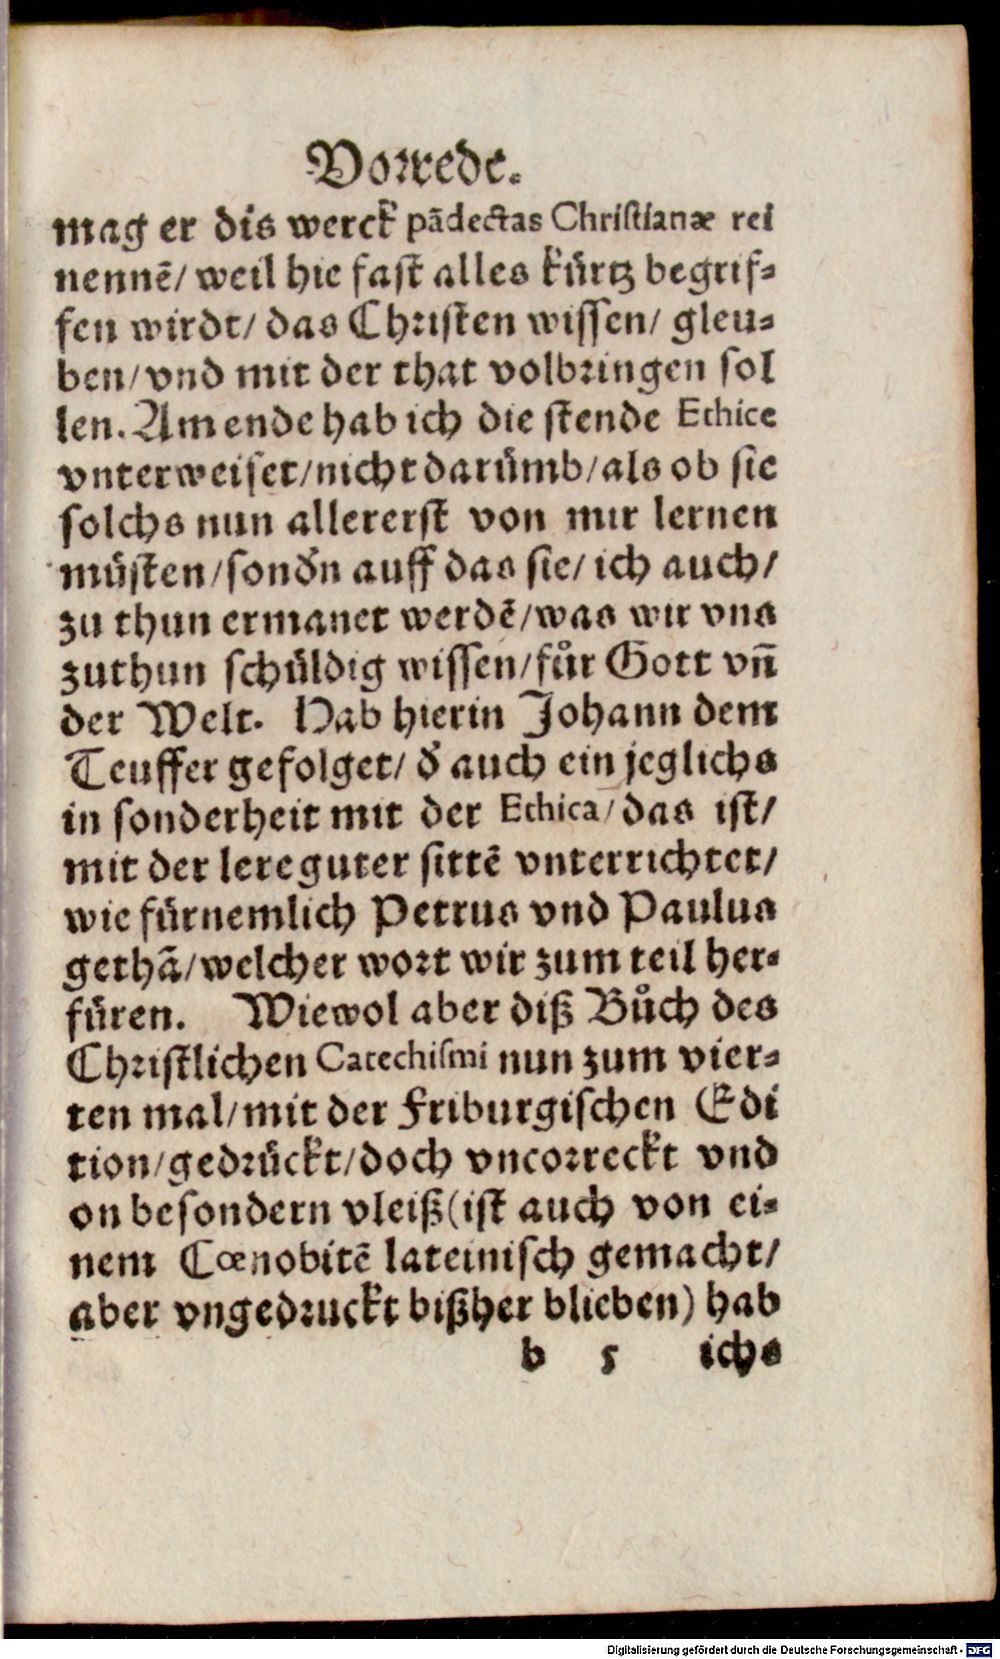 Vorrede.
mag er dis werck pādectas Christianæ rei
nennē/ weil hie fast alles kürtz begrif-
fen wirdt/ das Christen wissen/ gleu-
ben/ vnd mit der that volbringen sol
len. Am ende hab ich die stende Ethice
vnterweiset/ nicht darümb/ als ob sie
solchs nun allererst von mir lernen
müsten/ sonđn auff das sie/ ich auch/
zu thun ermanet werdē/ was wir vns
zuthun schüldig wissen/ fůr Gott vñ
der Welt. Hab hierin Johann dem
Teuffer gefolget/ đ auch ein jeglichs
in sonderheit mit der Ethica/ das ist/
mit der lere guter sittē vnterrichtet/
wie fürnemlich Petrus vnd Paulus
gethā/ welcher wort wir zum teil her-
füren. Wiewol aber diß Bůch des
Christlichen Catechismi nun zum vier-
ten mal/ mit der Friburgischen Edi
tion/ gedrückt/ doch vncorreckt vnd
on besondern vleiß (ist auch von ei-
nem Cœnobitē lateinisch gemacht/
aber vngedruckt bißher blieben) hab
b 5 ichs
Digitalisierung gefördert durch die Deutsche Forschungsgemeinschaft - DFG